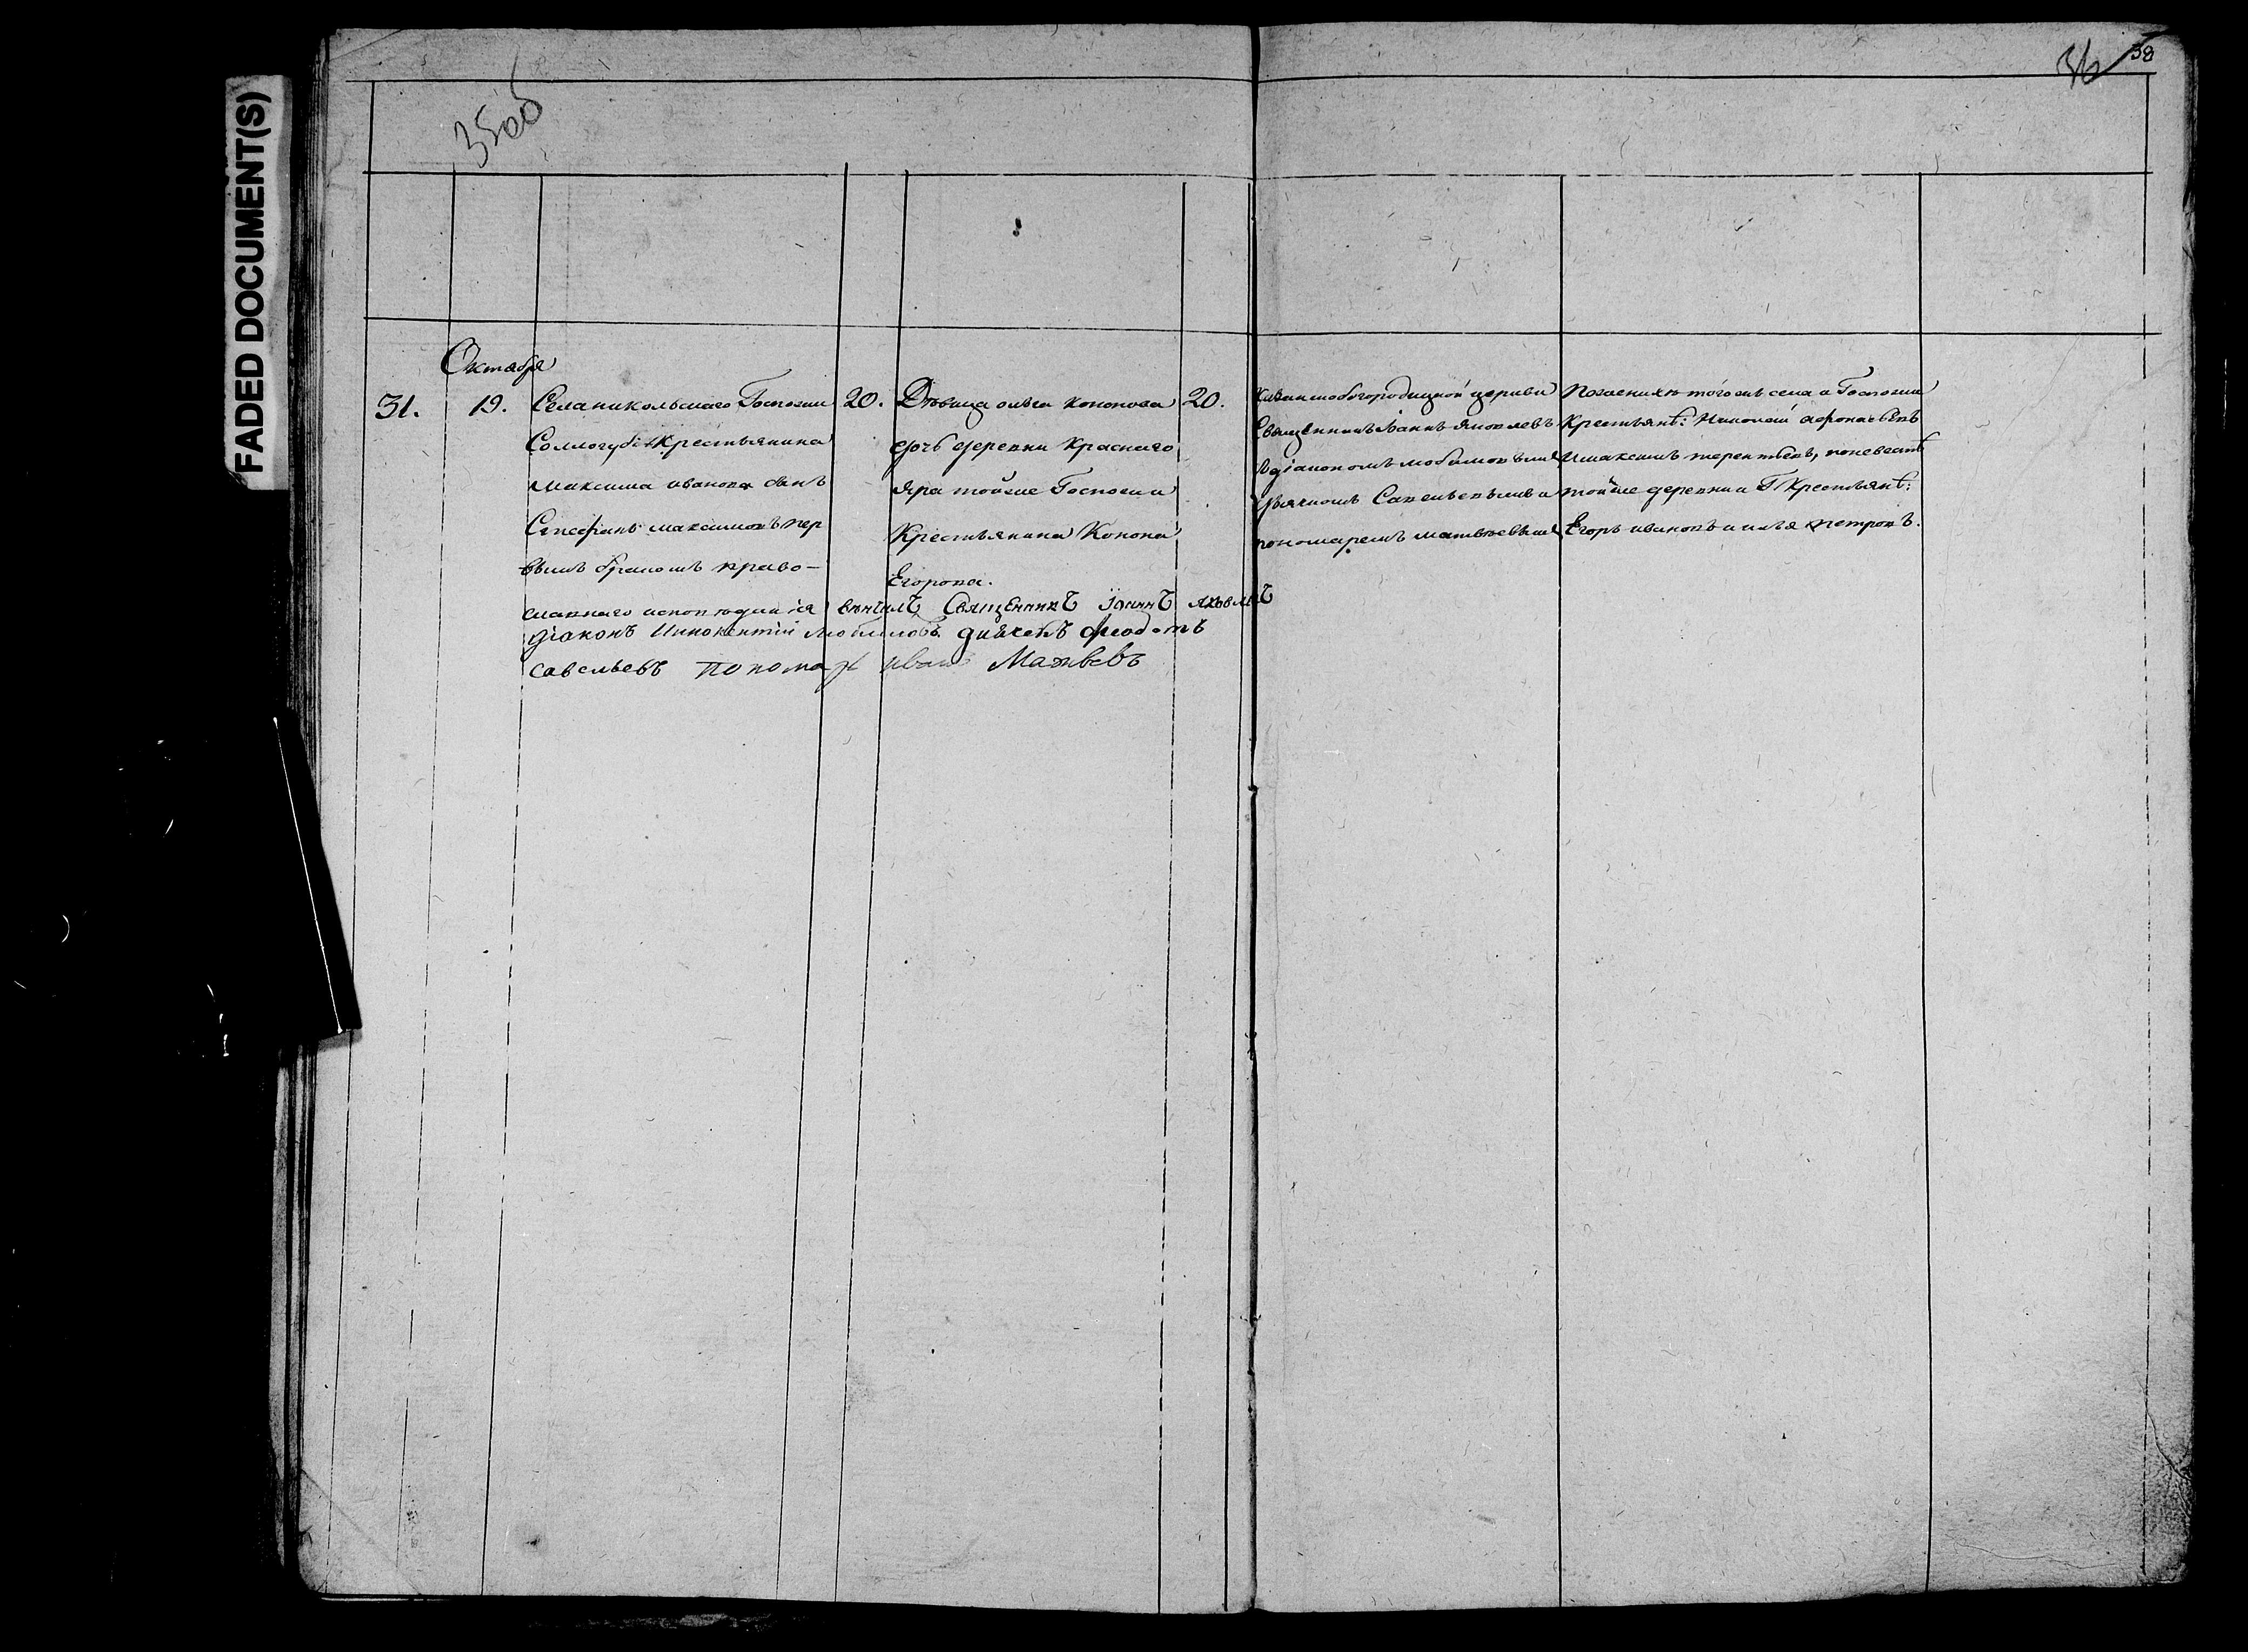 FADED DOCUMENT(S)
35об
36 38
Октября
31. 19. Села никольскаго Госпожи
Соллогубъ Крестьянина
Максима иванова сынъ
Стефанъ максимовъ пер
вымъ бракомъ право-
славнаго исповѣданія
20.
Дѣвица ольга кононова
дочь деревни Краснаго
Яра тойже Госпожи
Крестьянина Конона
Егорова.
20.
богородицкой церкви
Священникъ Іоаннъ Яковлевъ
съ діакономъ любимовымъ
дьячкомъ Савельевымъ и
пономаремъ матвѣевымъ
По женихѣ тогожъ села и Госпожи
Крестьянѣ: Николай афонасьевъ
И максимъ терентьевъ, по невестѣ
тойже деревни и Г. Крестьянѣ:
Егоръ ивановъ и илья петровъ.
вѣнчалъ Священникъ Іоаннъ Яковлевъ
діаконъ Иннокентій Любимовъ дьячекъ Феодотъ
савельевъ пономарь иванъ Матвѣевъ